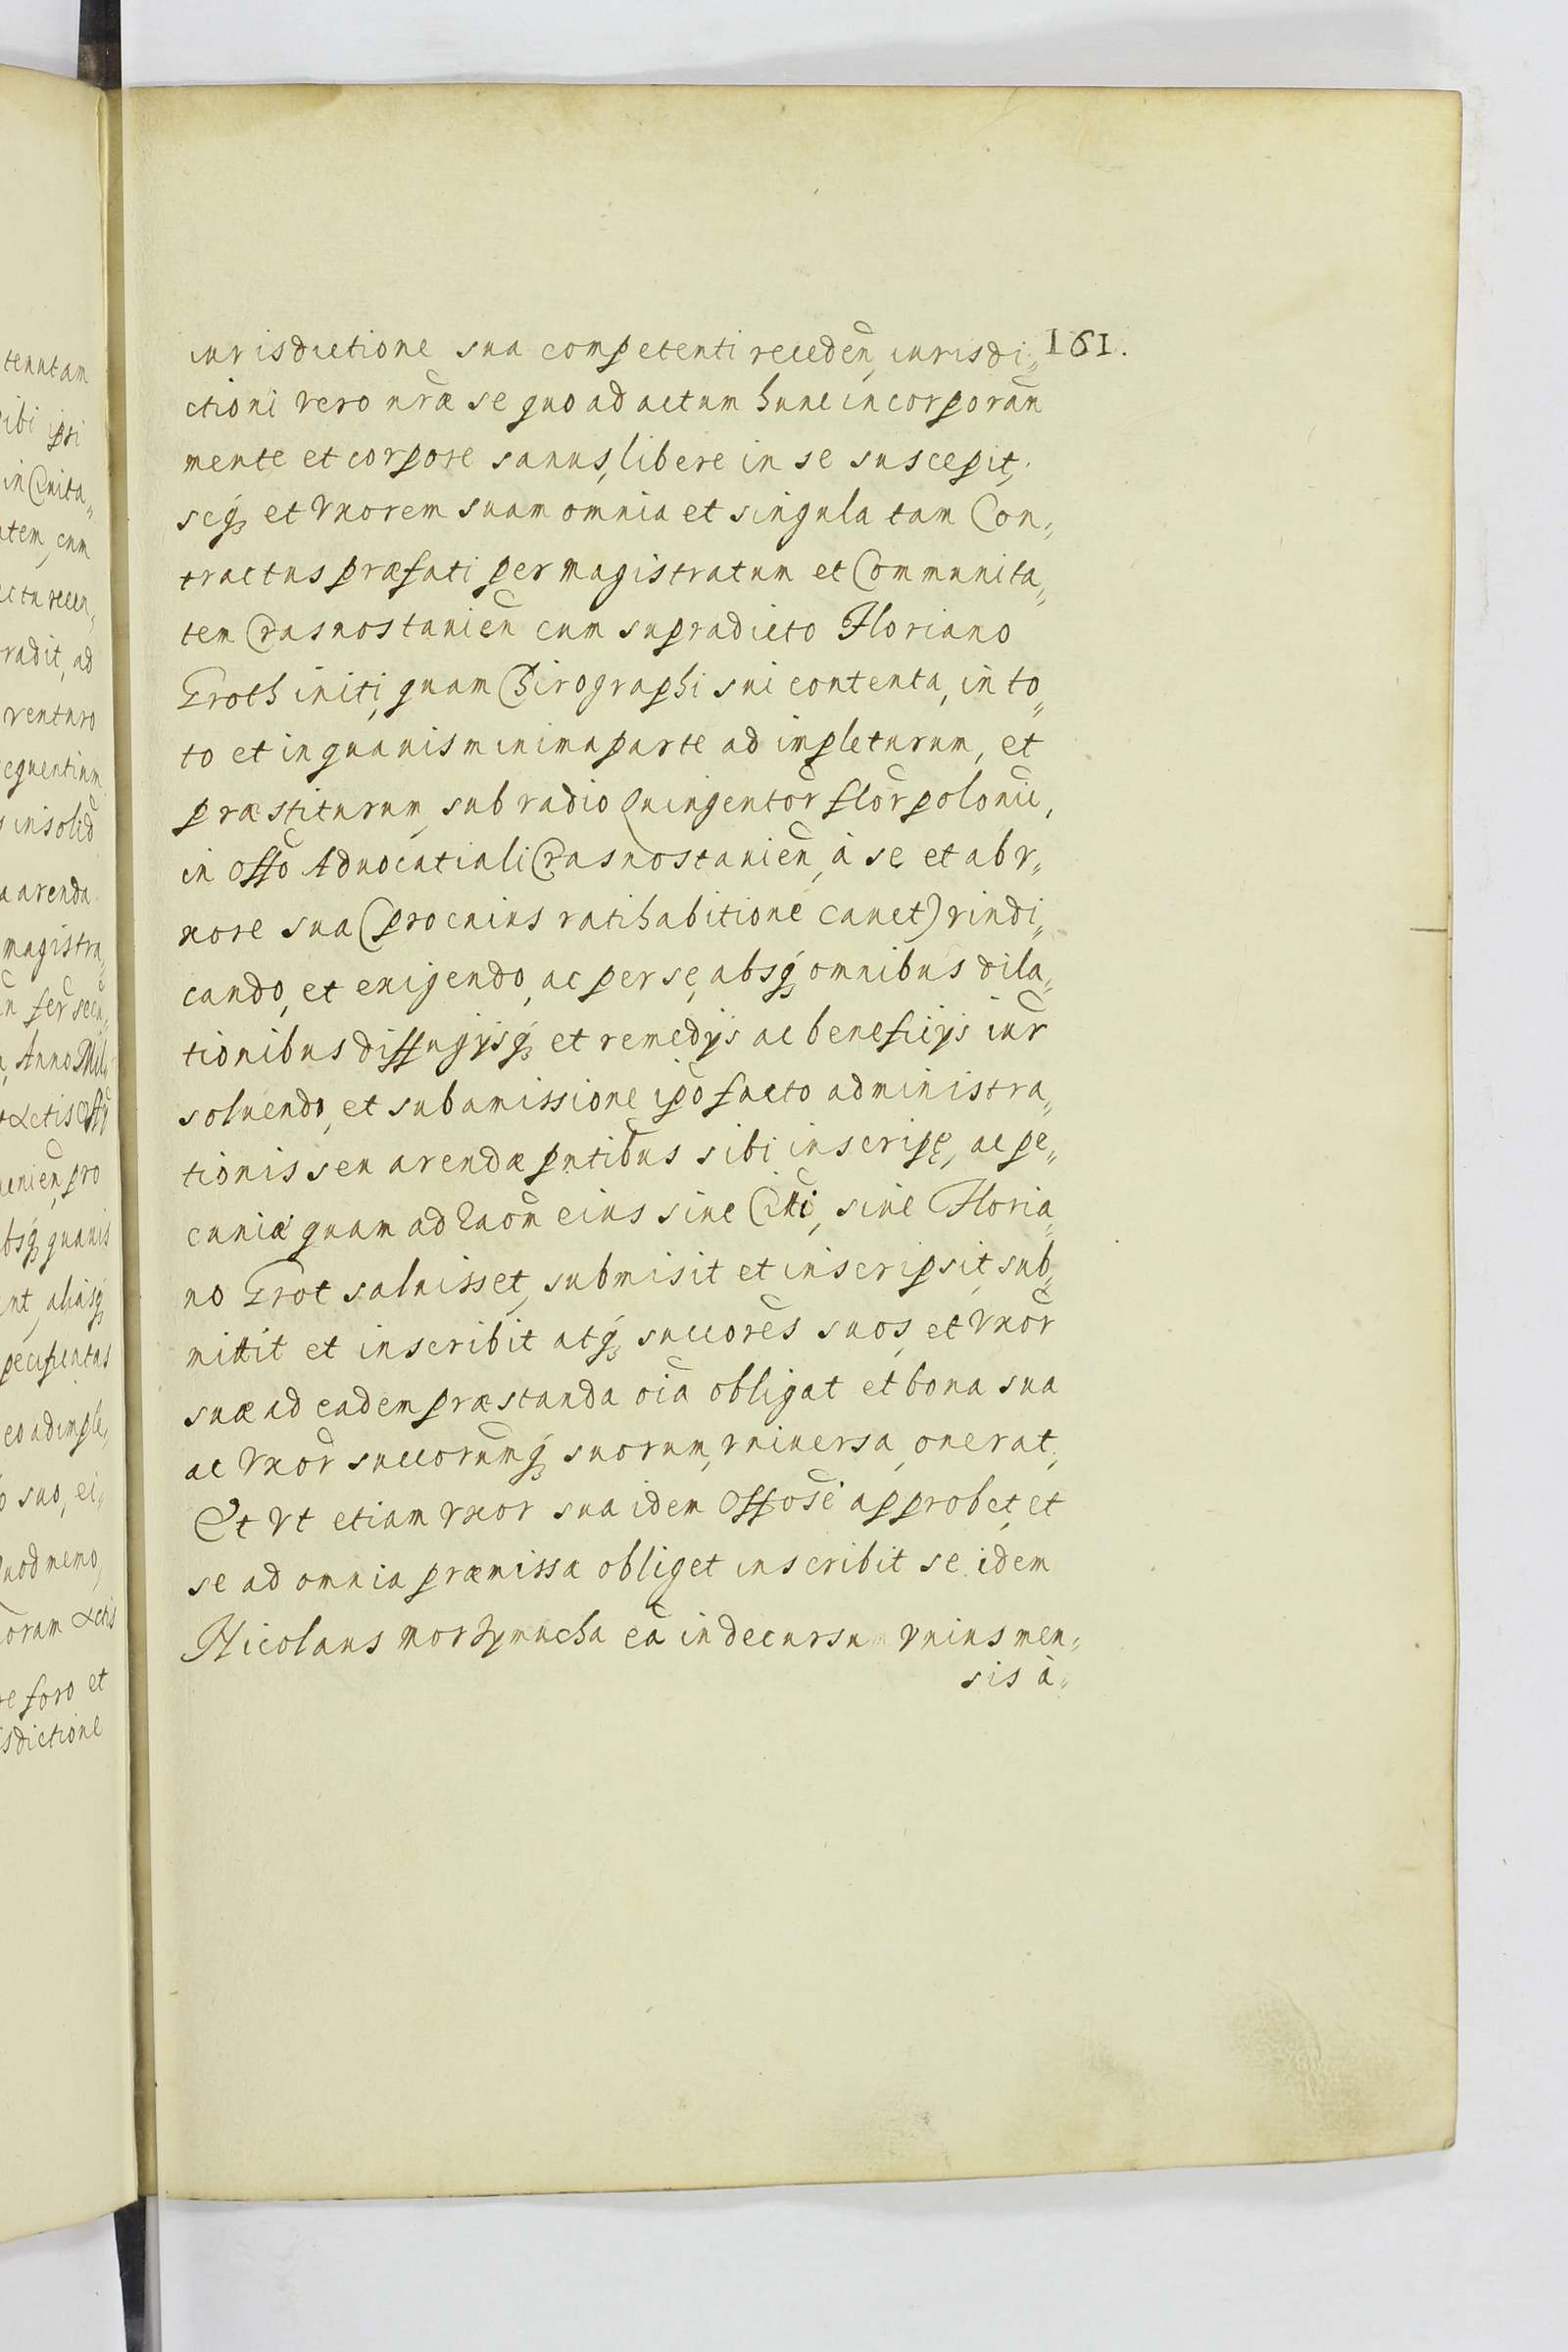 iurisdictione sua competenti receden̄, iurisdi„ 161.
ctioni vero nr̄æ se quo ad actum hunc incorporan̄
mente et corpore sanus, libere in se suscepit,
seq́ꝫ et Vxorem suam omnia et singula tam Con„
tractus præfati per magistratum et Communita„
tem Crasnostanien̄ cum supradicto Floriano
Groth initi, quam Chirographi sui contenta, in to„
to et in quauis minima parte ad impleturum, et
præstiturum, sub vadio Quingentor̄ flor̄ polonic̄,
in Offo̅ Aduocatiali Crasnostanien̄, à se et ab v„
xore sua (pro cuius ratihabitione cauet) vindi„
cando, et exigendo, ac per se, absq́ꝫ omnibus dila„
tionibus diffugijsq́ꝫ et remedijs ac beneficijs iur̄
soluendo, et sub amissione ipo̅ facto administra„
tionis seu arendæ pn̄tibus sibi inscriptę, ac pe„
cuniæ quam ad rao̅m eius siue Ciuiti, siue Floria„
no Grot saluisset, submisit et inscripsit, sub„
mittit et inscribit atq́ꝫ succores̄ suos, et Vxor̄
suæ ad eadem præstanda oīa obligat et bona sua
ac Vxor̄ succorum̄q́ꝫ suorum, vniuersa, onerat,
Et Vt etiam vxor sua idem Offose̅ approbet, et
se ad omnia præmissa obliget inscribit se idem
Nicolaus Morzymucha ea̅ in decursu vnius men„
sis à„

tenutam
sibi ipsi
in Ciuita„
atem, cum
radit, ad
venturo
equentium
in solid̄
a arenda
magistra„
Anno Mil„
pro
absq́ꝫ quauis
aliasq́ꝫ
pecificatas
eo adimple„
suo, ei„
Quod nemo,
Actis
re foro et
isdictione